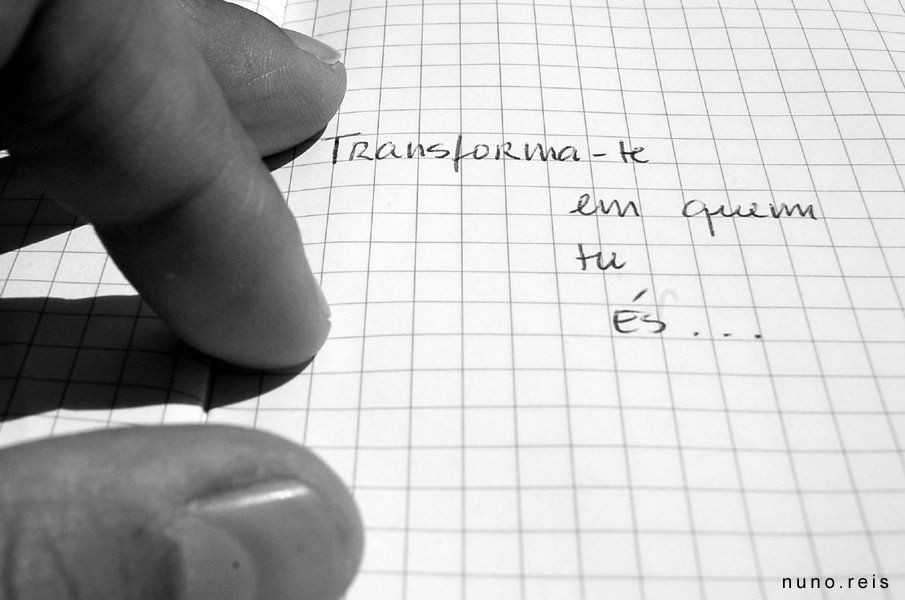 Transforma-te
em quem
tu
És...
nuno.reis